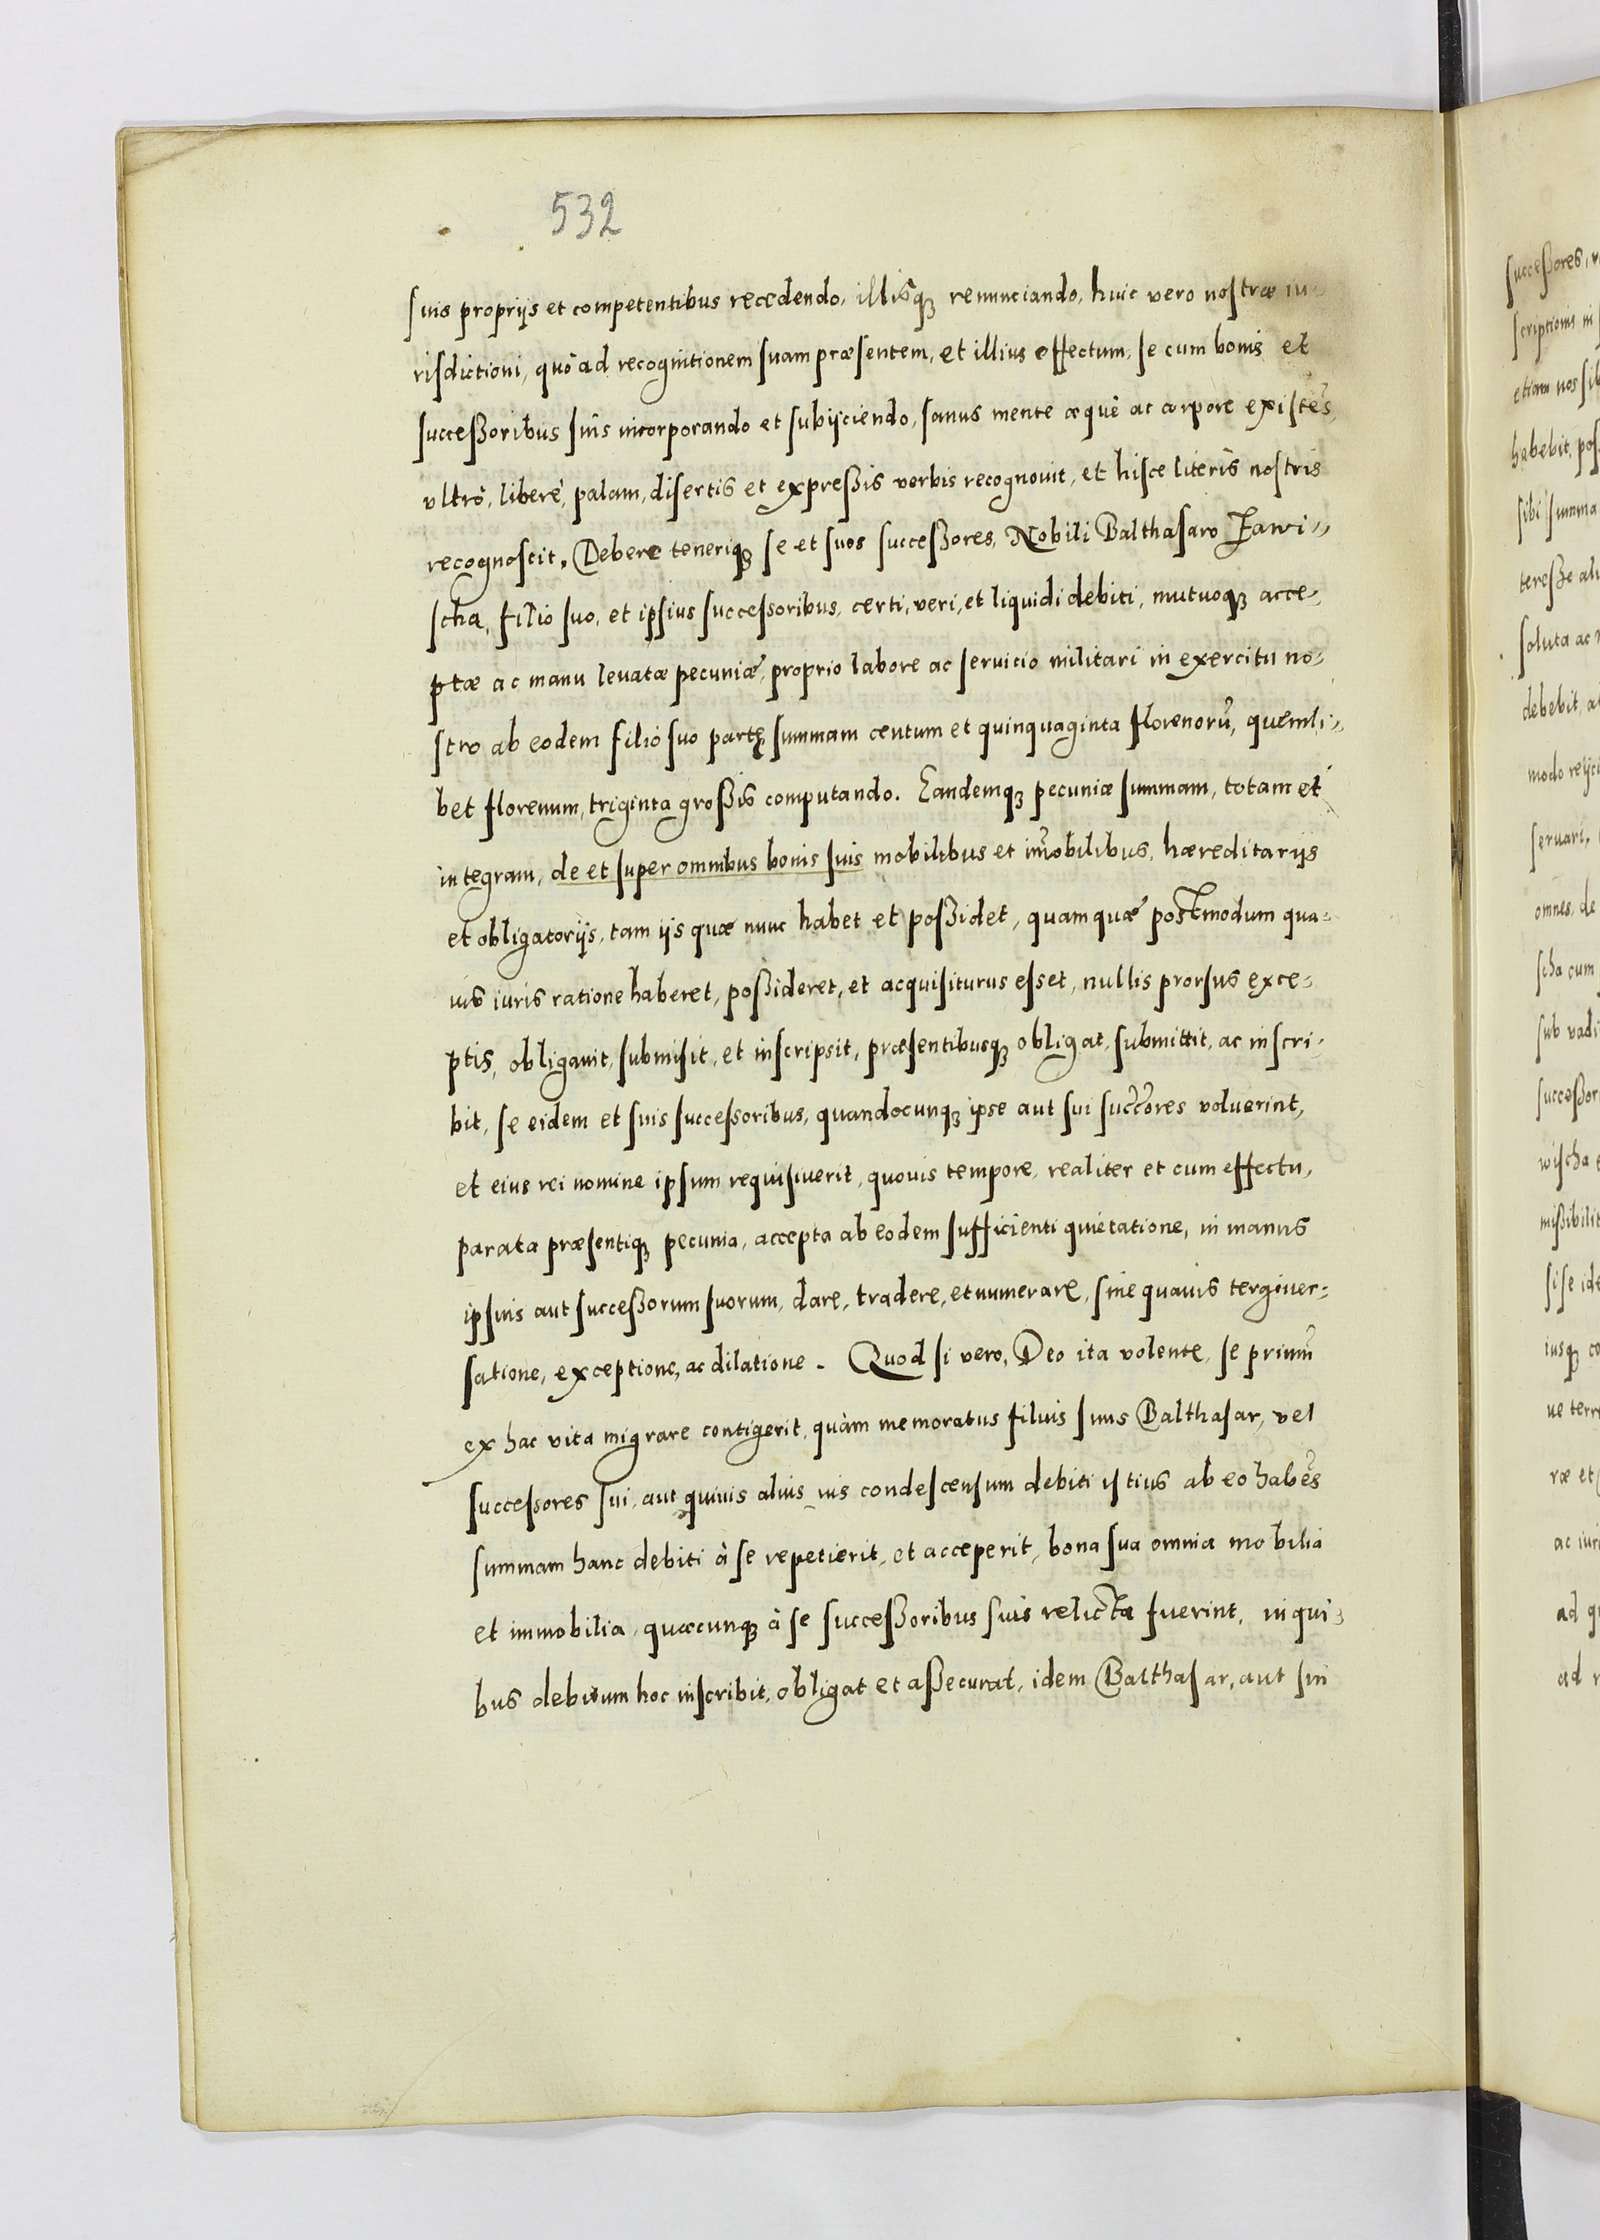 532
suis proprijs et competentibus recedendo, illisq; renunciando, huic vero nostræ iu-
risdictioni, quò ad recognitionem suam præsentem, et illius effectum, se cum bonis et
successoribus suis incorporando et subijciendo, sanus mente æquè ac corpore existẽs,
vltrò, liberè, palam, disertis et expressis verbis recognouit, et hisce literis nostris
recognoscit. Debere teneriq; se et suos successores, Nobili Balthasaro Zawi-
scha, filio suo, et ipsius successoribus, certi, veri, et liquidi debiti, mutuoq; acce-
ptæ ac manu leuatæ pecuniæ, proprio labore ac seruicio militari in exercitu no-
stro ab eodem filio suo partę summam centum et quinquaginta florenorũ, quemli-
bet florenum, triginta grossis computando. Eandemq; pecuniæ summam, totam et
integram, de et super omnibus bonis suis mobilibus et im̃obilibus, hæreditarijs
et obligatorijs, tam ijs quæ nunc habet et possidet, quam quæ postmodum qua-
uis iuris ratione haberet, possideret, et acquisiturus esset, nullis prorsus exce-
ptis, obligauit, submisit, et inscripsit, præsentibusq; obligat, submittit, ac inscri-
bit, se eidem et suis successoribus, quandocunq; ipse aut sui succõres voluerint,
et eius rei nomine ipsum requisiuerit, quouis tempore, realiter et cum effectu,
parata præsentiq; pecunia, accepta ab eodem sufficienti quietatione, in manus
ipsius aut successorum suorum, dare, tradere, et numerare, sine quauis tergiuer-
satione, exceptione, ac dilatione. Quod si vero, Deo ita volente, se primũ
ex hac vita migrare contigerit, quàm memoratus filius suus Balthasar, vel
successores sui, aut quiuis alius ius condescensum debiti istius ab eo habẽs
summam hanc debiti à se repetierit, et acceperit, bona sua omnia mobilia
et immobilia, quæcunq; à se successoribus suis relicta fuerint, in qui-
bus debitum hoc inscribit, obligat et assecurat, idem Balthasar, aut sui